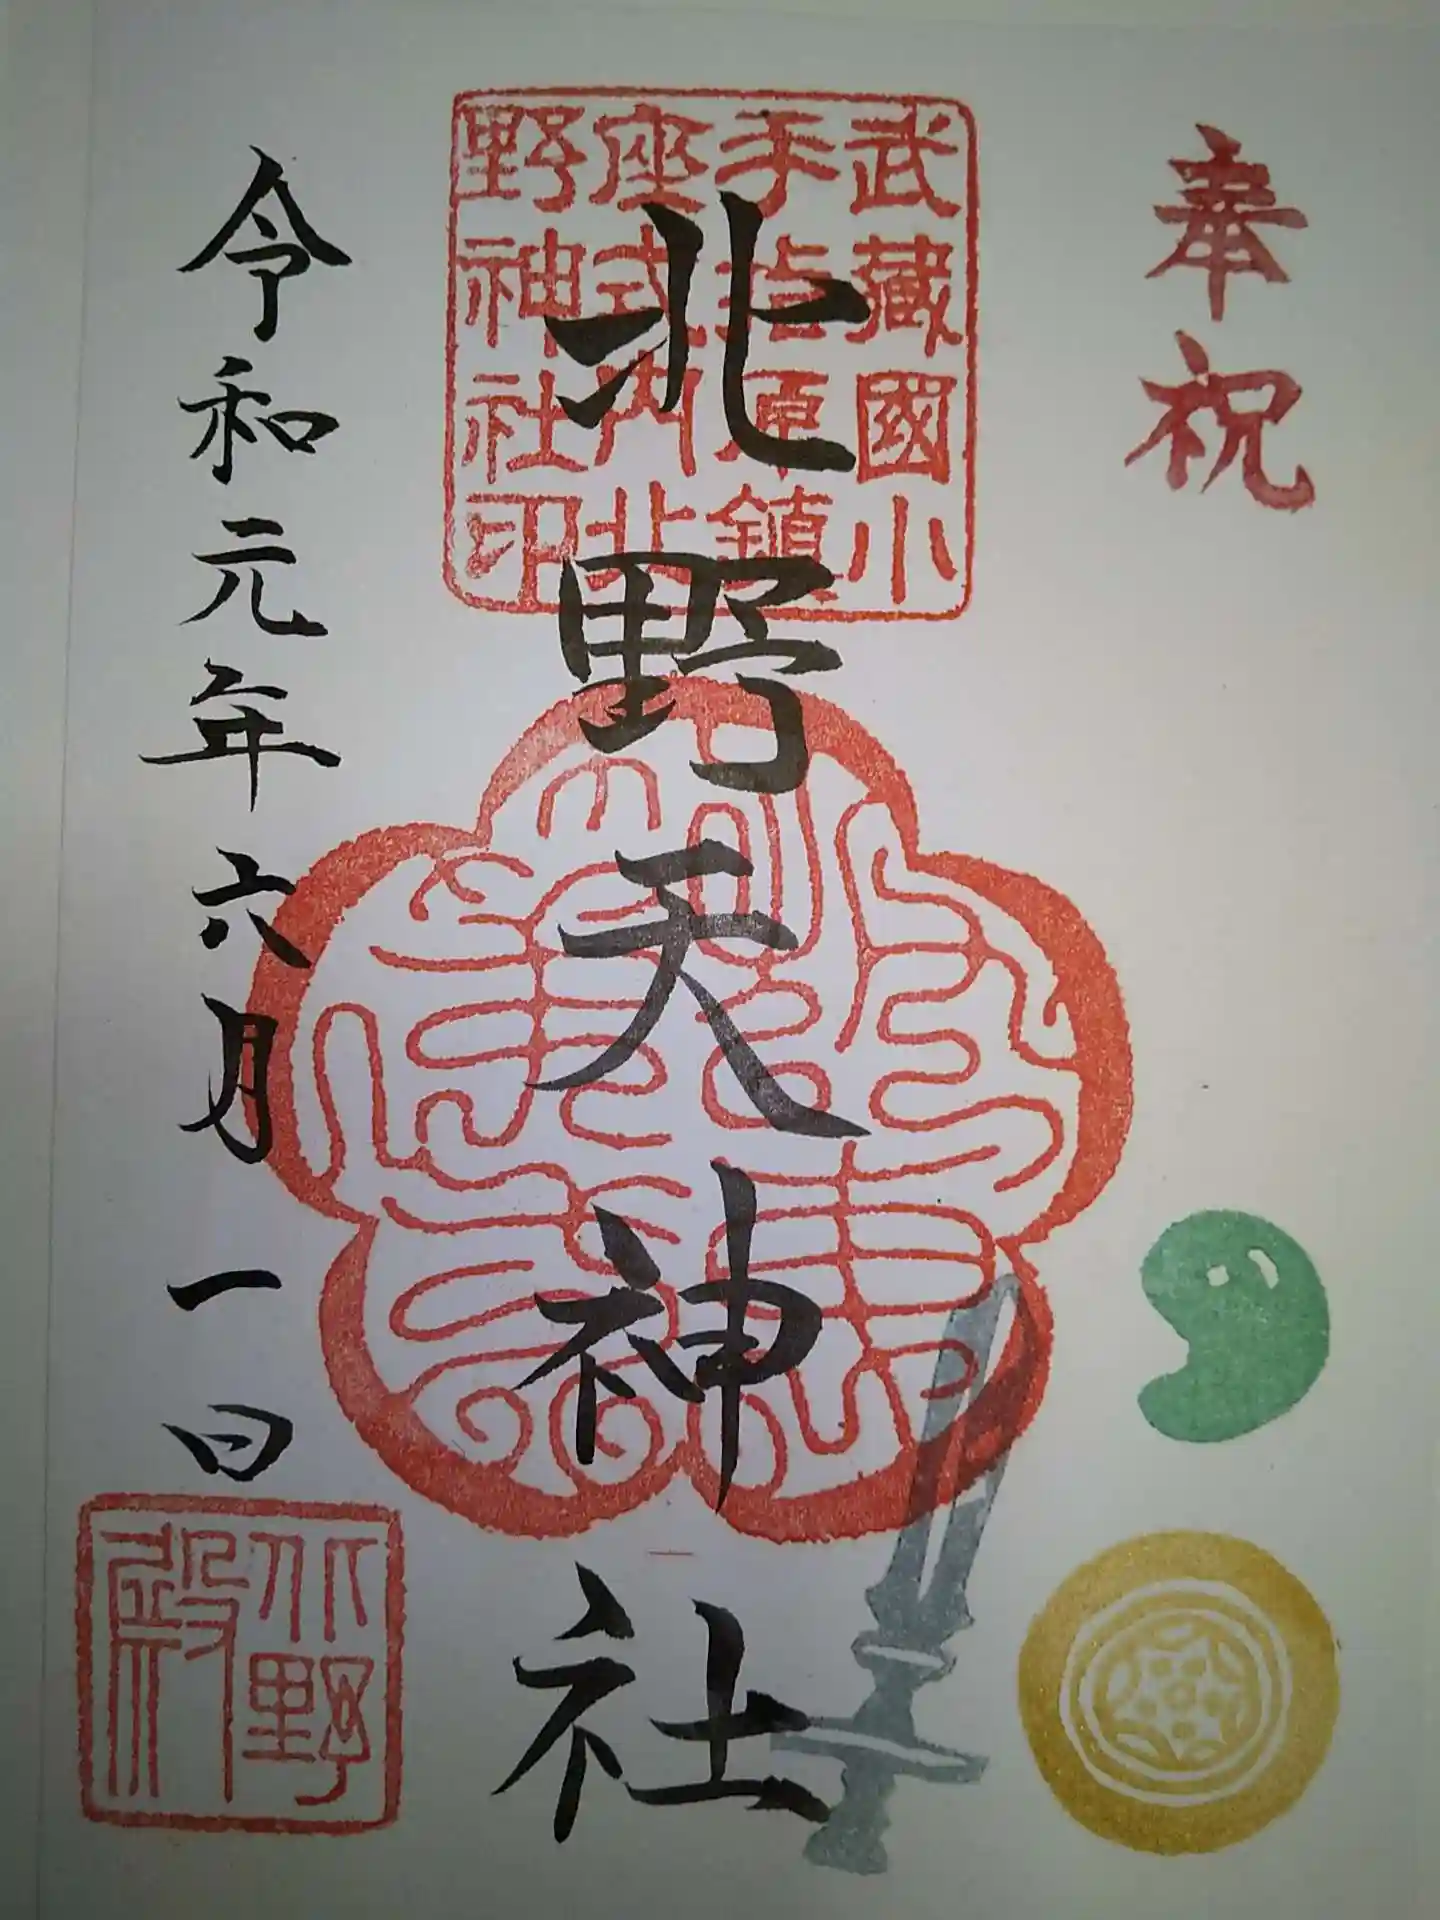 奉祝
武藏國小
手指原鎮
座式内北
野神社印
北野天神社
令和元年六月一日
北野
殿